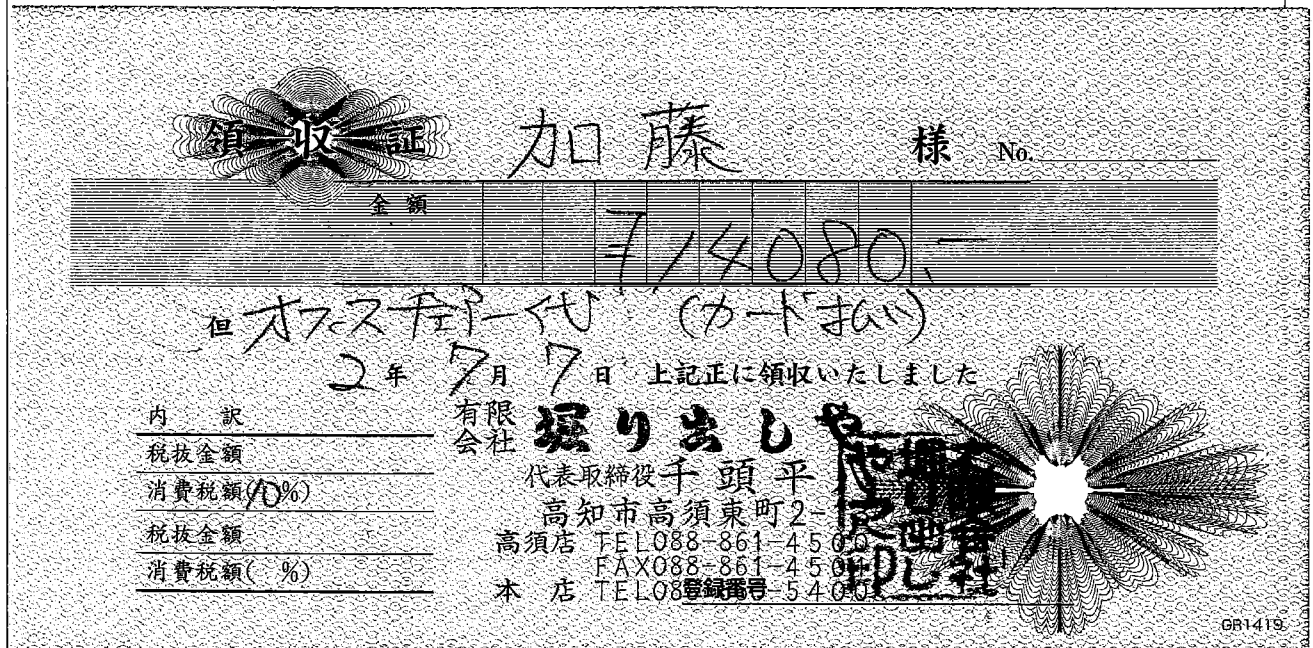 領収証 加藤 様 No.
金額
¥14080.-
但 オフィスチェアー代 (カード払い)
2年 7月 7日 上記正に領収いたしました
内 訳
税抜金額
消費税額(10%)
税抜金額
消費税額( %)
有限会社 堀り出しや
代表取締役 千頭平
高知市高須東町2-
高須店 TEL088-861-4500
FAX088-861-450
本 店 TEL08 -5400
登録番号
GR1419